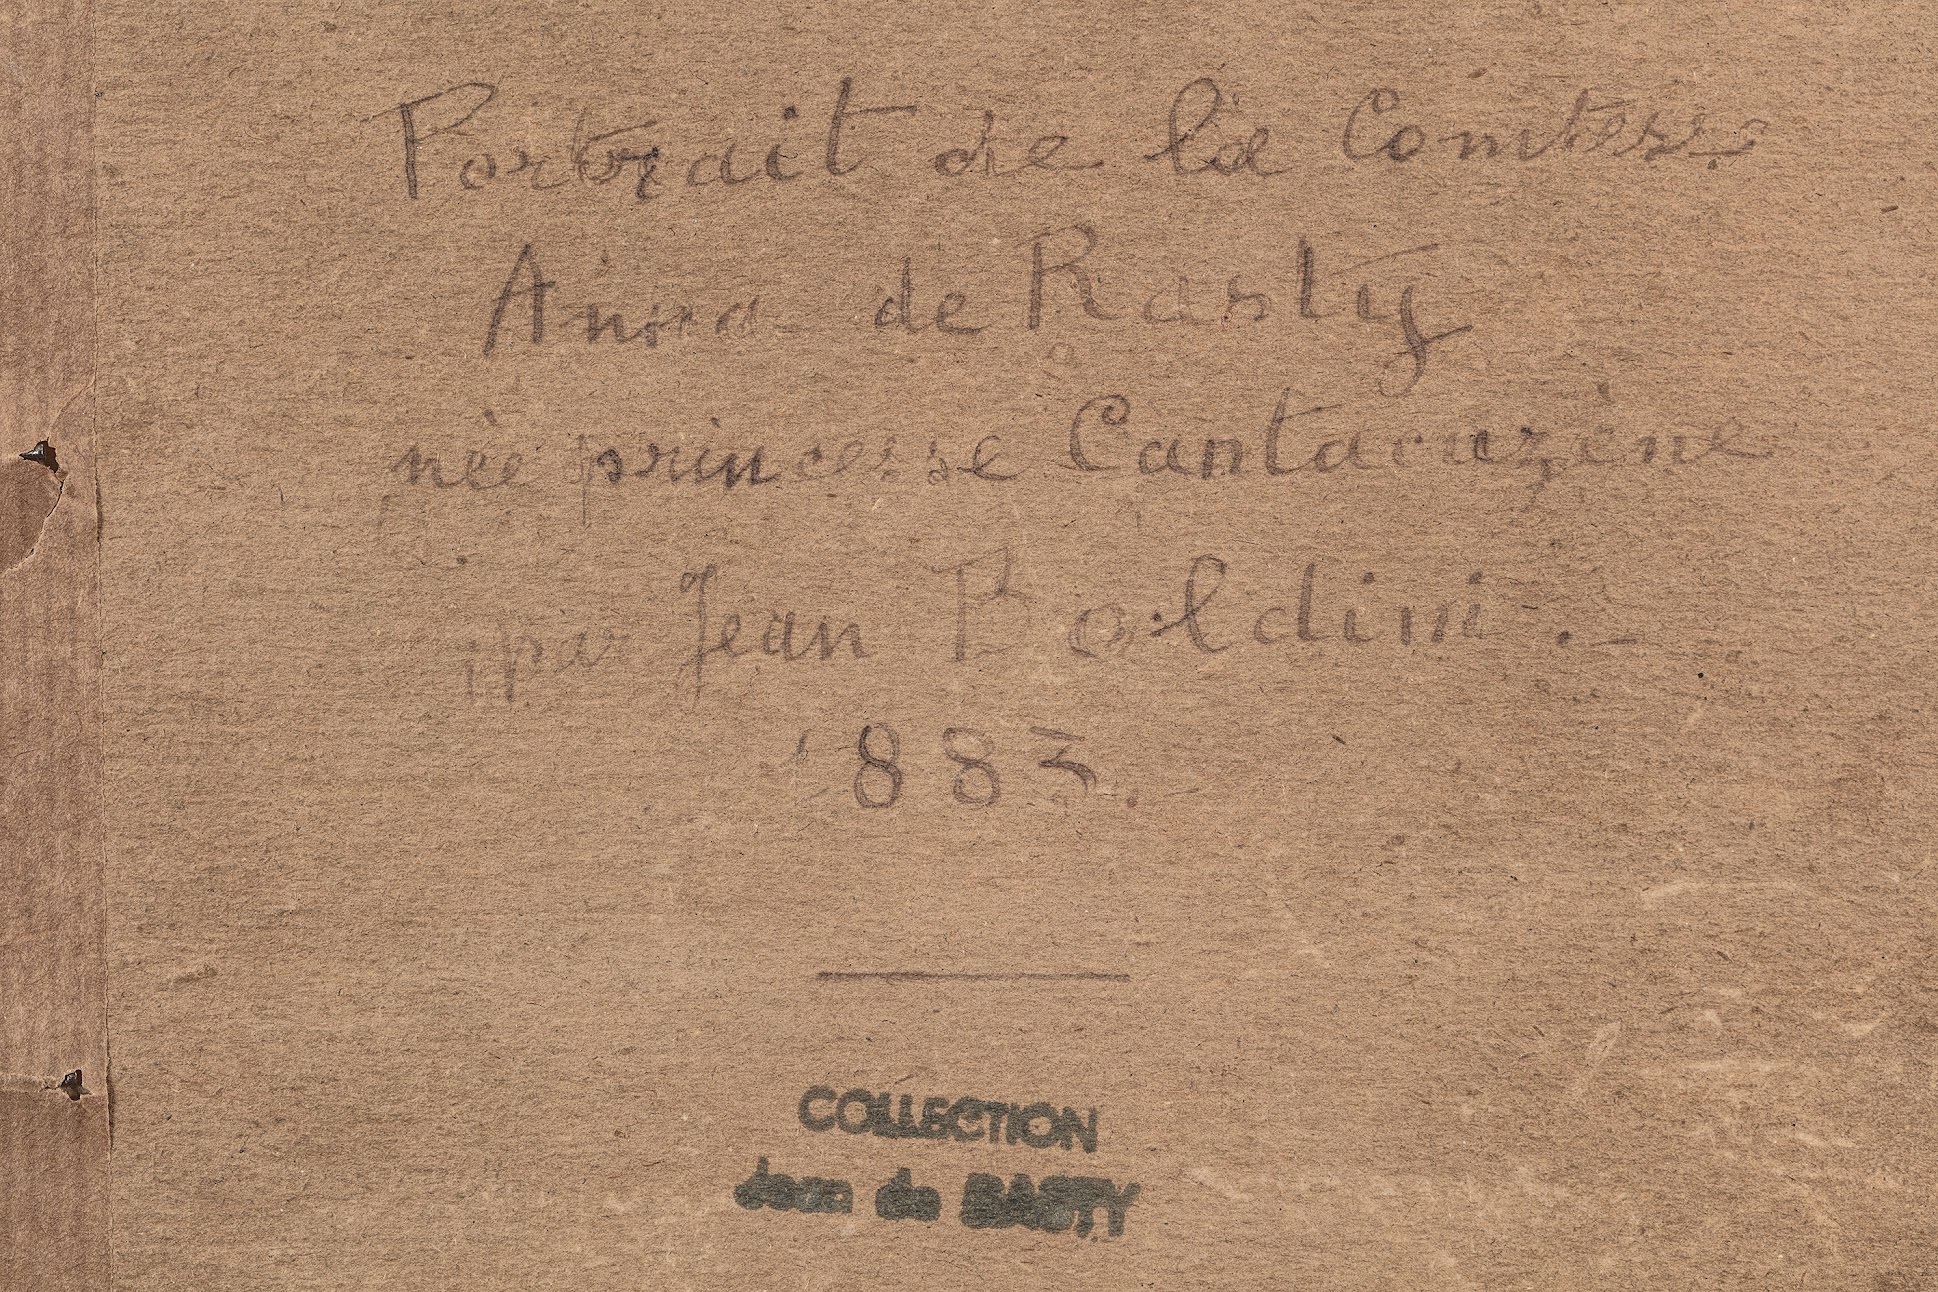 Portrait de la Comtesse
Anna de Rasty
née princesse Cantacuzène
par Jean Boldini .–
1883.
COLLECTION
Jean de RASTY